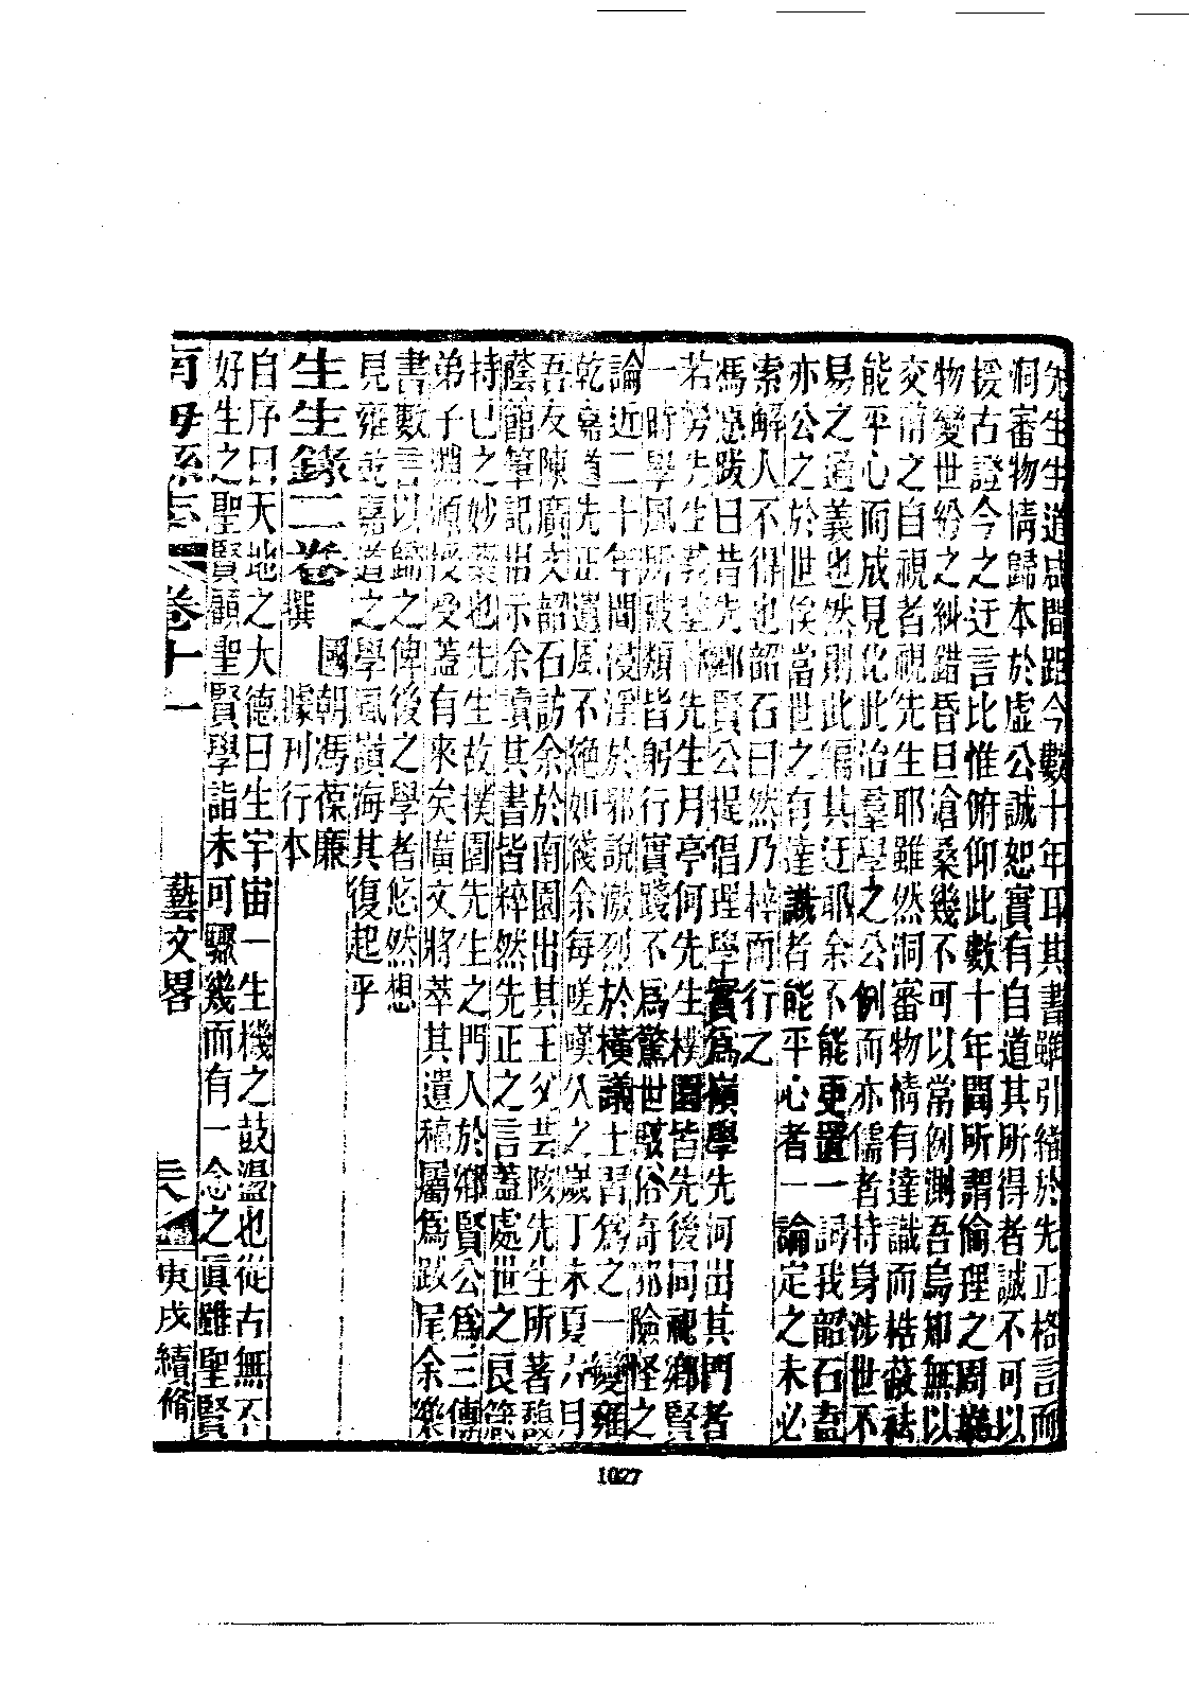 先生生道咸間距今數十年耳其書雖引緒於先正格言而
洞審物情歸本於虛公誠恕實有自道其所得者誠不可以
援古證今之迂言比惟俯仰此數十年間所謂倫理之周
物變世紛之糾錯昏旦滄桑幾不可以常例測吾烏知無以
交前之自視者視先生耶雖然洞審物情有達識而祛蔽祛
能平心而成見化此治羣學之公例而亦儒者持身涉世不
易之通義也然則此編其迂耶余不能更置一詞我韶石盍
亦公之於世俟當世之有達識者能平心者一論定之未必
索解人不得也韶石曰然乃梓而行之
馮愿跋曰昔先鄉賢公提倡理學實爲嶺學先河出其門者
若勞先生先生月亭何先生樸園皆先後同視鄉賢
一時學風所被類皆躬行實踐不爲驚世駭俗奇邪險怪之
論近二十年間浸淫於邪說激烈於橫議士習爲之一變雍
乾嘉道先正遺風不絕如綫余每嗟嘆久之歲丁未夏六月
吾友陳廣文韶石訪余於南園出其王父芸陔先生所著馥
蔭館筆記出示余讀其書皆粹然先正之言蓋處世之良箴
持已之妙藥也先生故樸園先生之門人於鄉賢公爲三傳
弟子淵源授受蓋有來矣廣文將萃其遺稿屬爲跋尾余樂
書數言以歸之俾後之學者悠然想
見雍乾嘉道之學風嶺海其復起乎
生生錄二卷 國朝馮葆廉
撰 據刊行本
自序曰天地之大德曰生宇宙一生機之鼓盪也從古無不
好生之聖賢顧聖賢學詣未可驟幾而有一念之眞雖聖賢
南海縣志 卷十一 藝文畧 庚戌續脩
1027